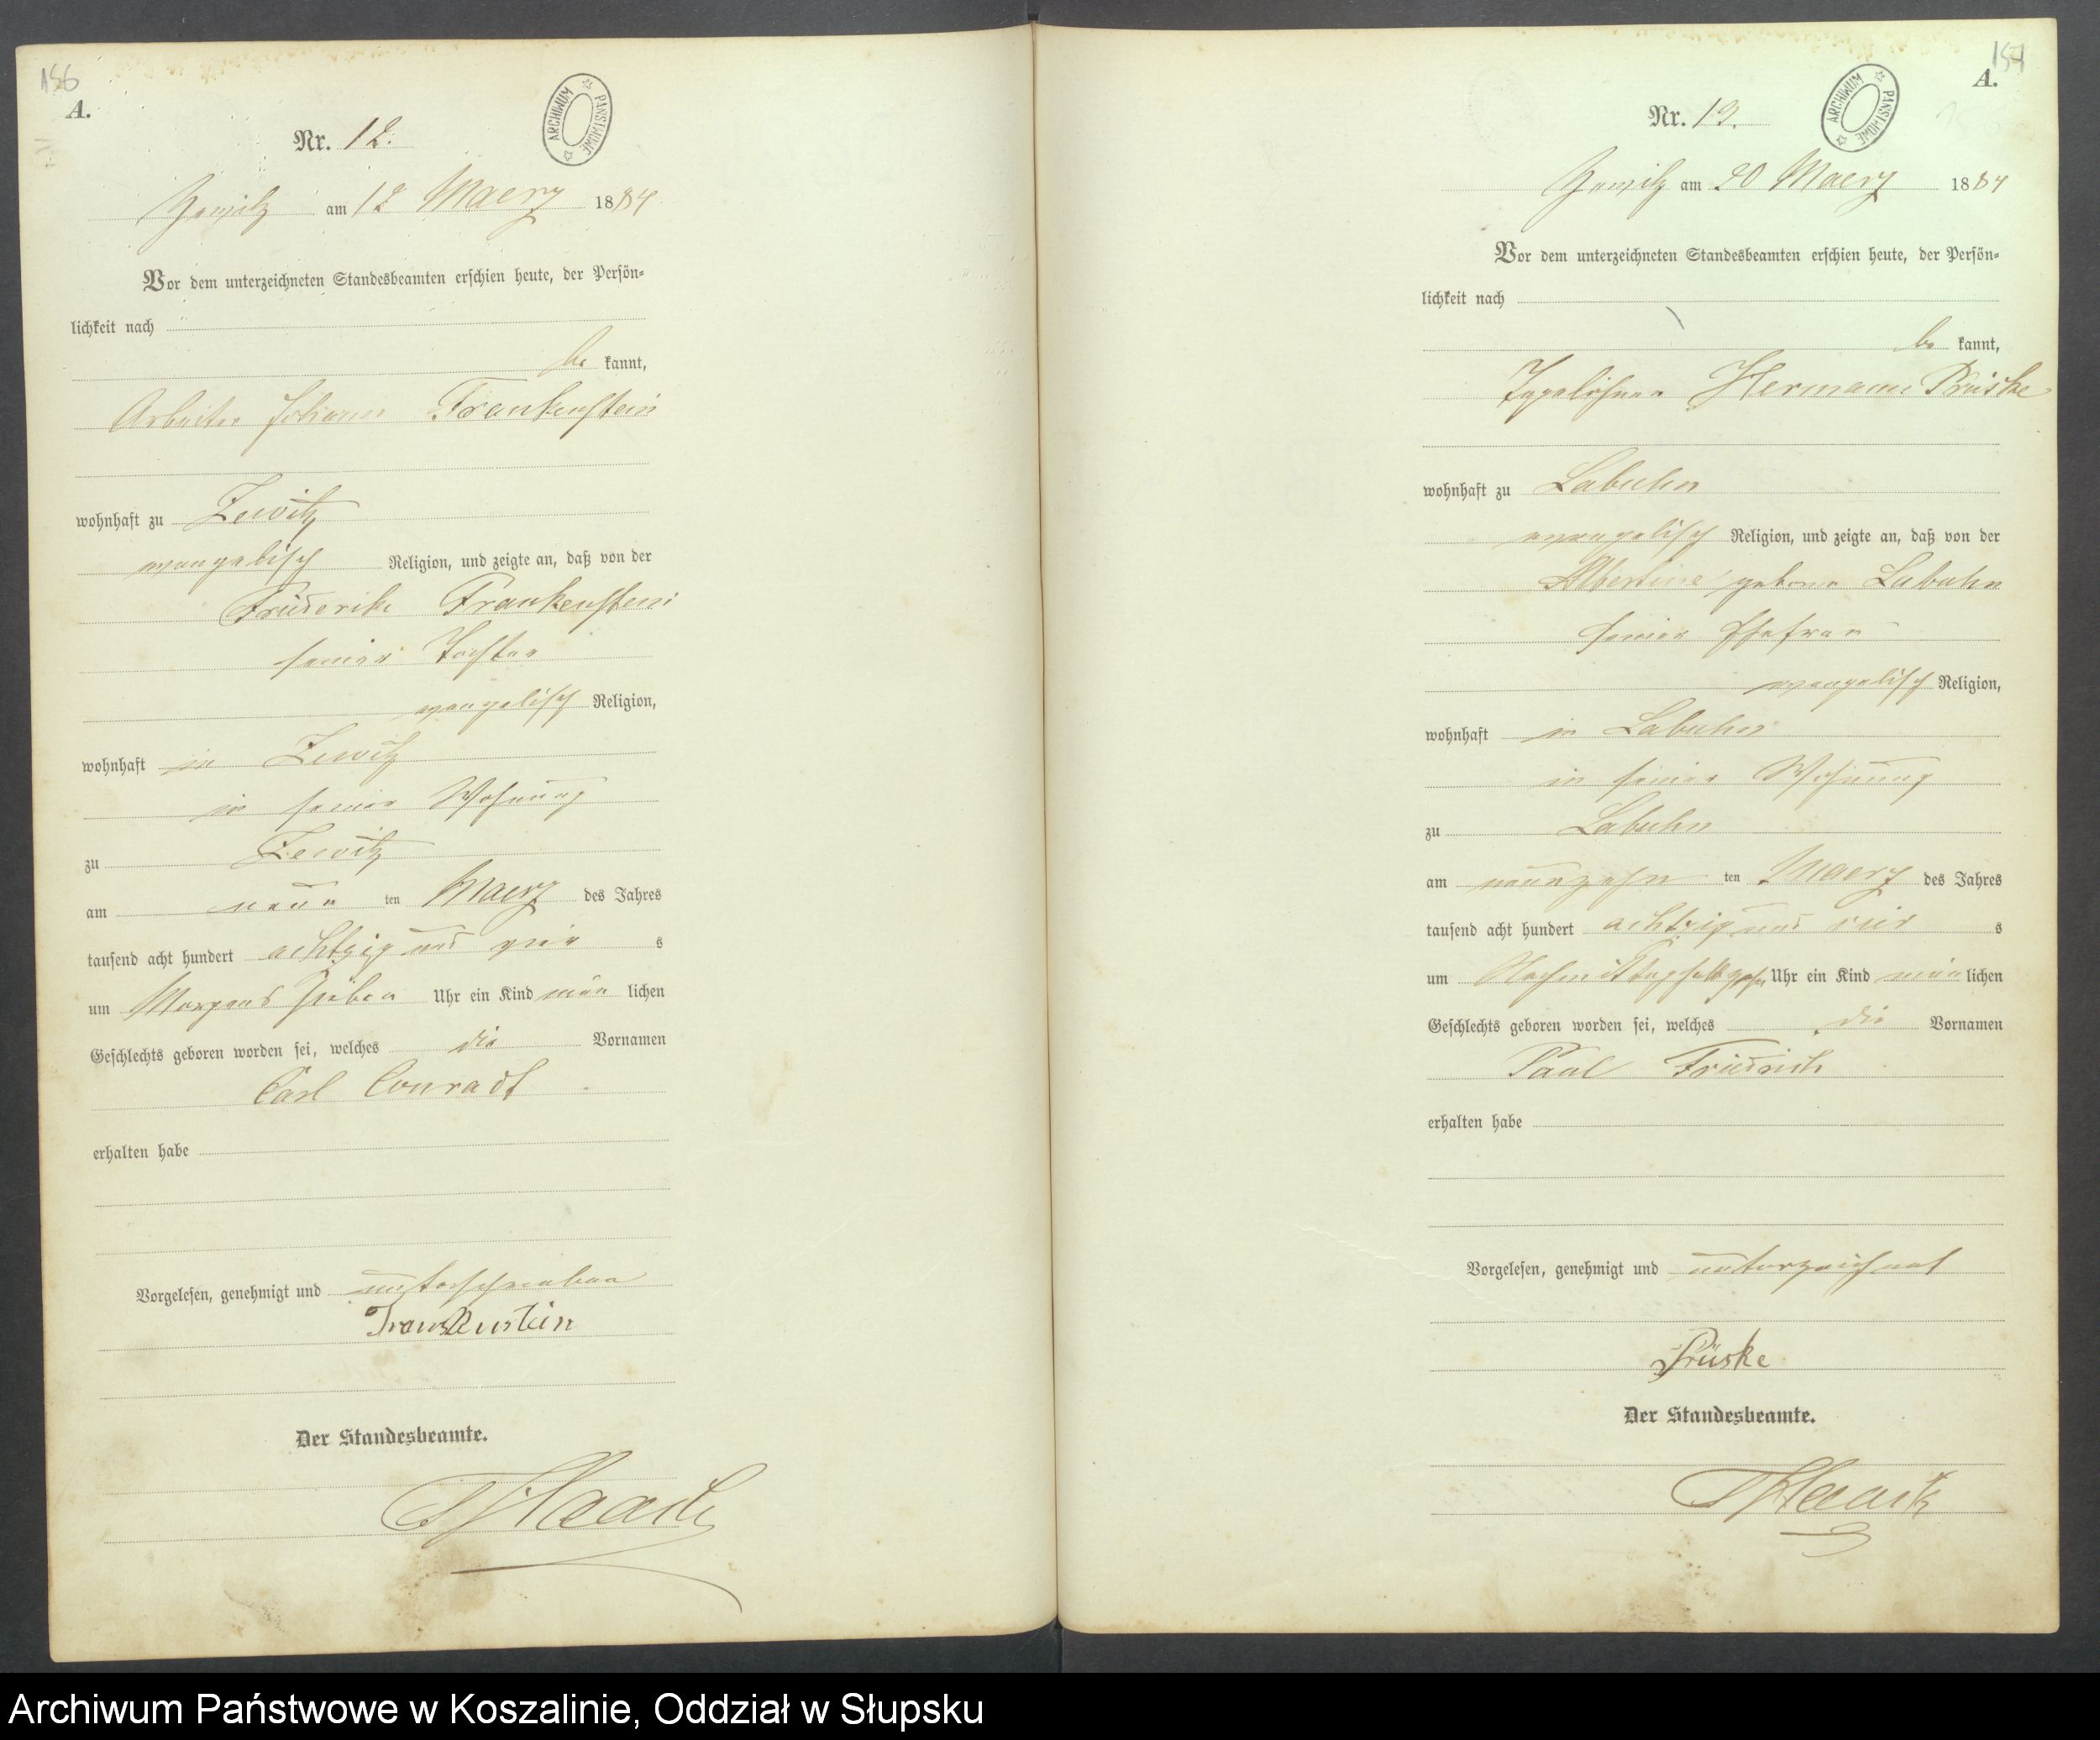 156
A.
Nr. 12.
ARCHIWUM PAŃSTWOWE
am 12 Maerz 1884
Vor dem unterzeichneten Standesbeamten erschien heute, der Persön-
lichkeit nach
be kannt,
Arbeiter Johann Frankenstein
wohnhaft zu Zewitz
evangelisch Religion, und zeigte an, daß von der
Friederike Frankenstein
seiner Tochter
evangelisch Religion,
wohnhaft in Zewitz
in seiner Wohnung
zu Zewitz
am neun ten Maerz des Jahres
tausend acht hundert achtzig und vier s
um Morgens sieben Uhr ein Kind män lichen
Geschlechts geboren worden sei, welches die Vornamen
Carl Conradt
erhalten habe
Vorgelesen, genehmigt und unterschrieben
Frankenstein
Der Standesbeamte.
157
A.
Nr. 13.
ARCHIWUM PAŃSTWOWE
am 20 Maerz 1884
Vor dem unterzeichneten Standesbeamten erschien heute, der Persön-
lichkeit nach
be kannt,
Tagelöhner Hermann Prüske
wohnhaft zu Labuhn
evangelisch Religion, und zeigte an, daß von der
Albertine geborne Labuhn
seiner Ehefrau
evangelisch Religion,
wohnhaft in Labuhn
in seiner Wohnung
zu Labuhn
am neunzehn ten Maerz des Jahres
tausend acht hundert achtzig und vier s
um Nachmittag halb zehn Uhr ein Kind män lichen
Geschlechts geboren worden sei, welches die Vornamen
Paul Friedrich
erhalten habe
Vorgelesen, genehmigt und unterzeichnet
Prüske
Der Standesbeamte.
Archiwum Państwowe w Koszalinie, Oddział w Słupsku